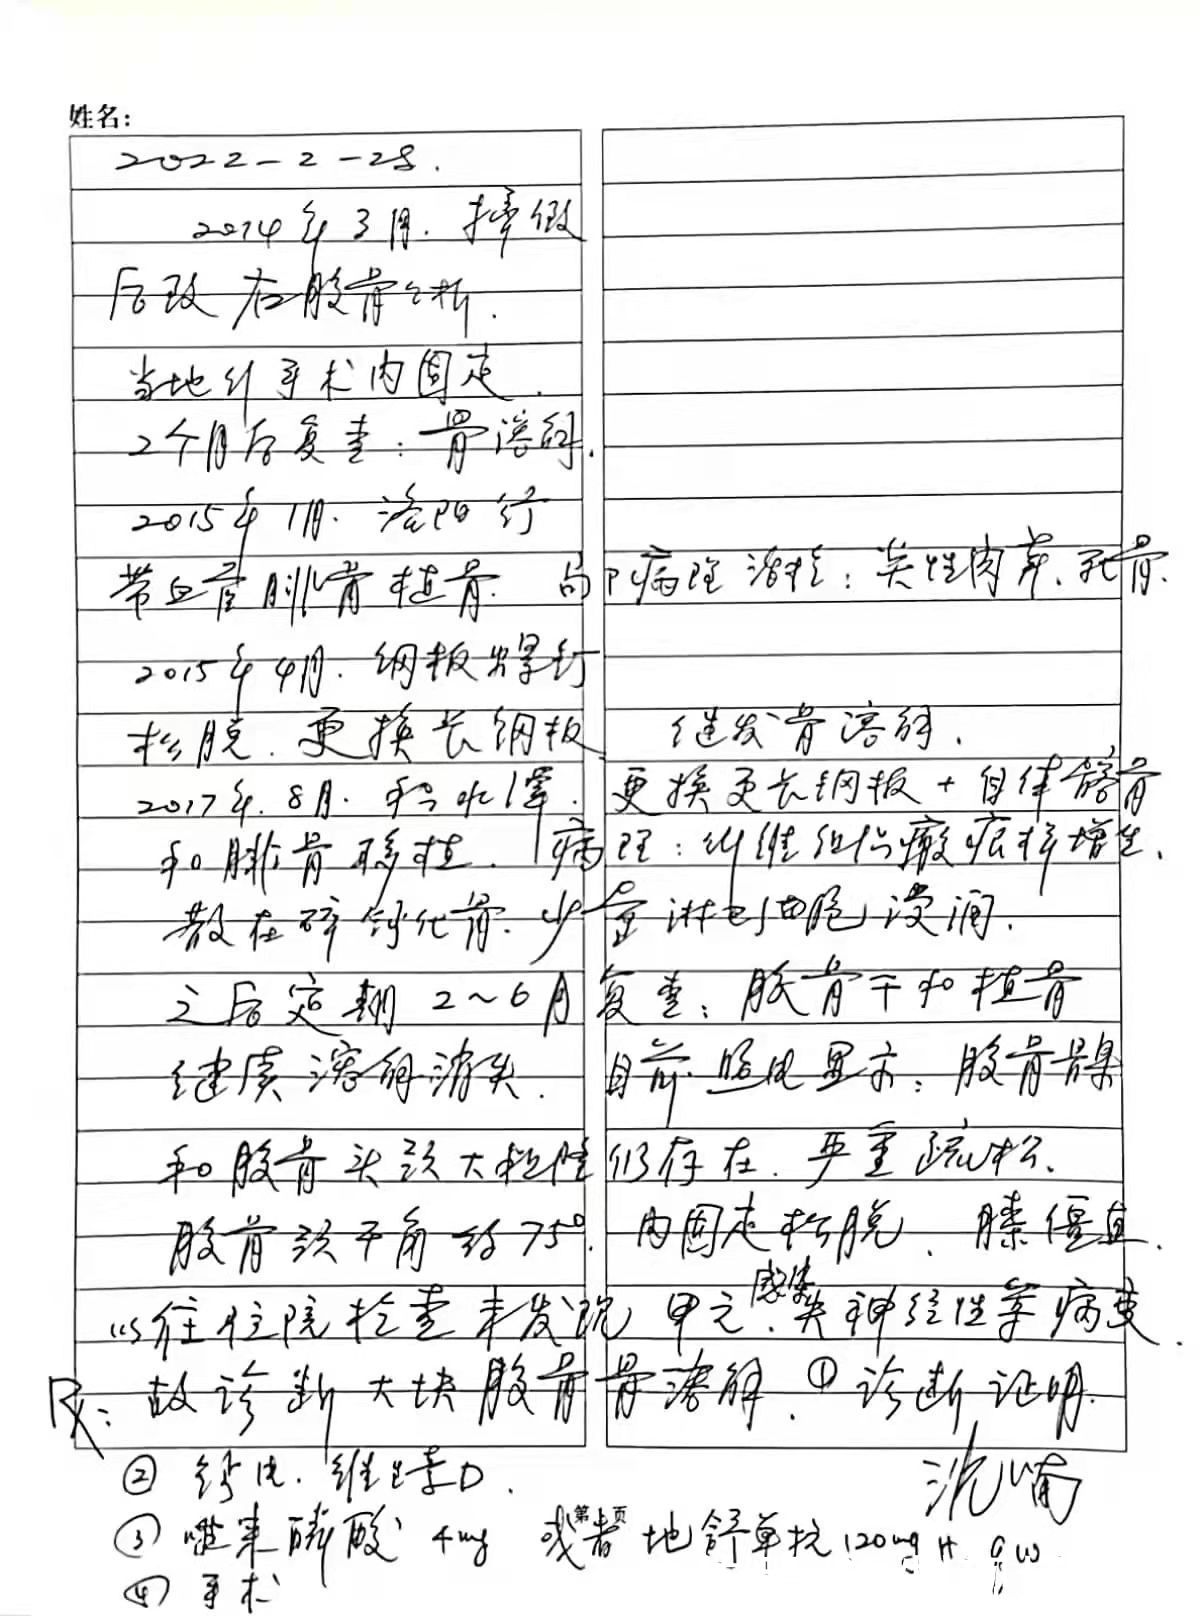 姓名:
2022-2-28.
2014年3月. 摔倒
后致右股骨骨折.
当地行手术内固定.
2个月后复查：骨溶解.
2015年1月. 洛阳行
带血管腓骨植骨. 局部病理活检：炎性肉芽、死骨.
2015年4月. 钢板螺钉
松脱. 更换长钢板 继发骨溶解.
2017年.8月. 积水潭. 更换更长钢板+自体髂骨
和腓骨移植. 病理：纤维组织瘢痕样增生、
散在碎钙化骨. 少量淋巴细胞浸润.
之后定期2～6月复查：股骨干和植骨
继续溶解消失. 目前照片显示：股骨髁
和股骨头颈大粗隆仍存在. 严重疏松、
股骨颈干角约75°. 内固定松脱、膝僵直.
以往住院检查未发现甲亢、感染类神经性等病变.
Rx: 故诊断大块股骨骨溶解. ① 诊断证明.
② 钙片. 维生素D.
③ 唑来膦酸 4mg 或者地舒单抗 120mg H q w
④ 手术
第1页